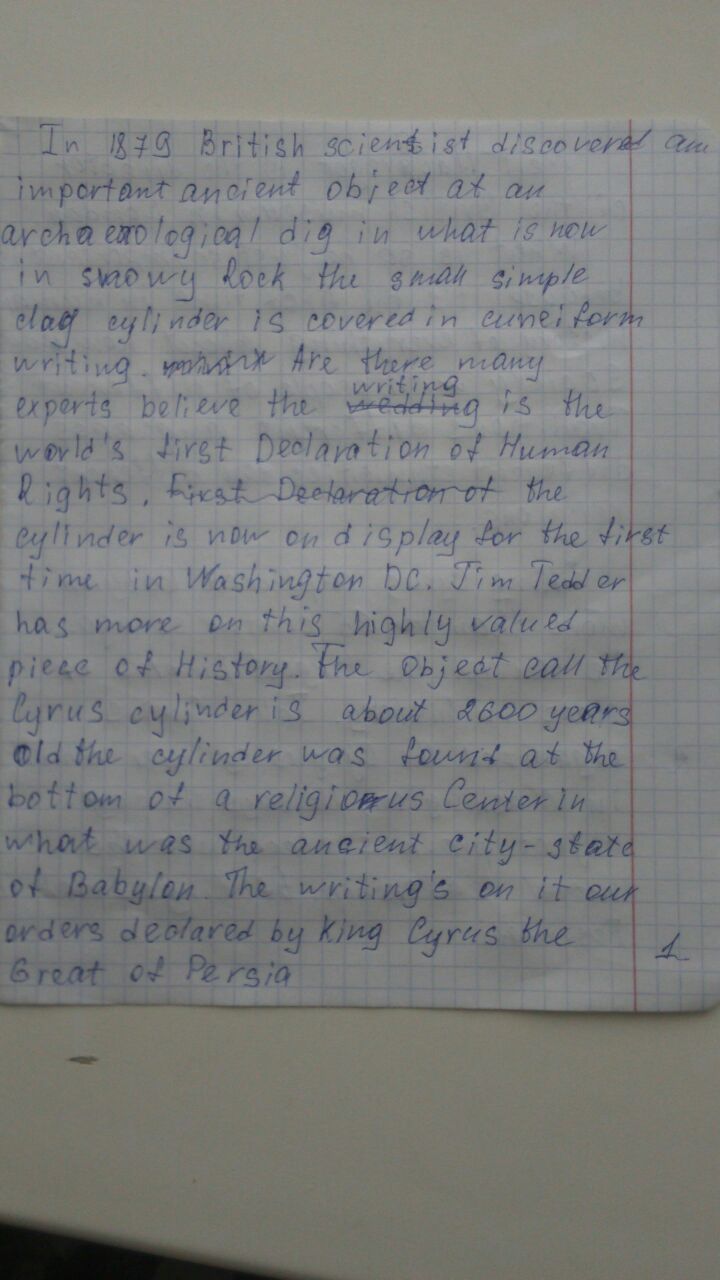 In 1879 British scientist discovered an
important ancient object at an
archaeological dig in what is now
in snowy Rock the small simple
clay cylinder is covered in cuneiform
writing. Are there many
writing
experts believe the wedding is the
world's first Declaration of Human
Rights. First Declaration of the
cylinder is now on display for the first
time in Washington DC. Jim Tedder
has more on this highly valued
piece of History. The object call the
Cyrus cylinder is about 2600 years
old the cylinder was found at the
bottom of a religious Center in
what was the ancient city-state
of Babylon. The writing's on it our
orders declared by King Cyrus the
Great of Persia
1